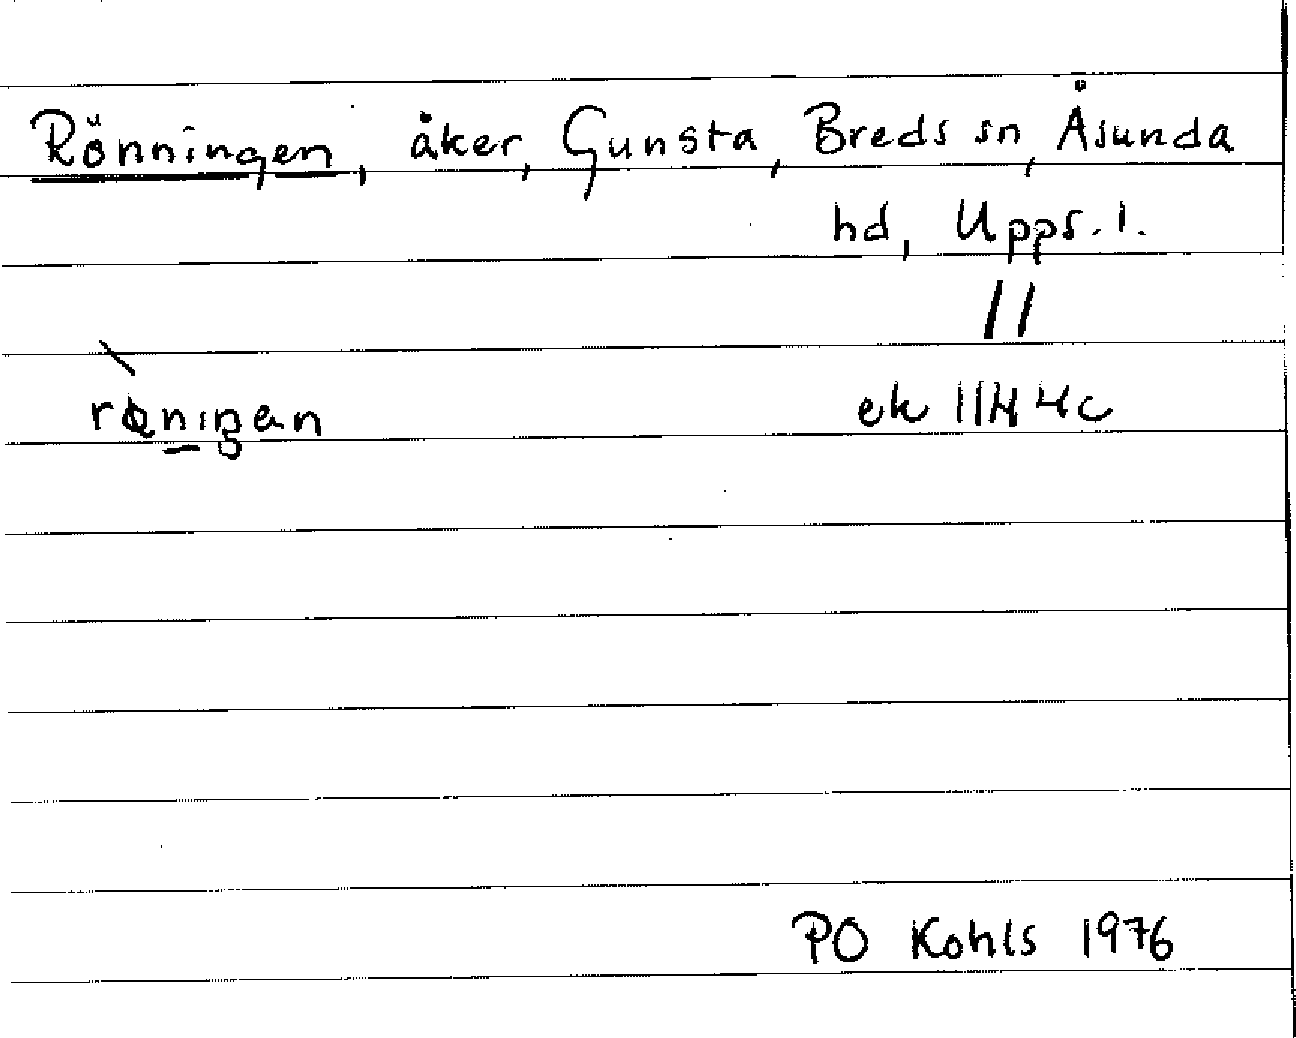 Rönningen, åker, Gunsta, Breds sn, Åsunda
hd, Upps. l.
//
ek 11H 4c
PO Kohls 1976